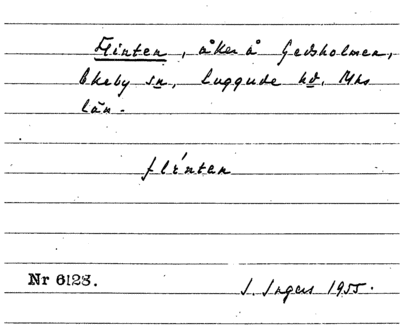 Flinten, åker å Gedsholmen,
Ekeby sn, Luggude hd, Mhs
län.
flínten
Nr 6128.
I. Ingers 1955.